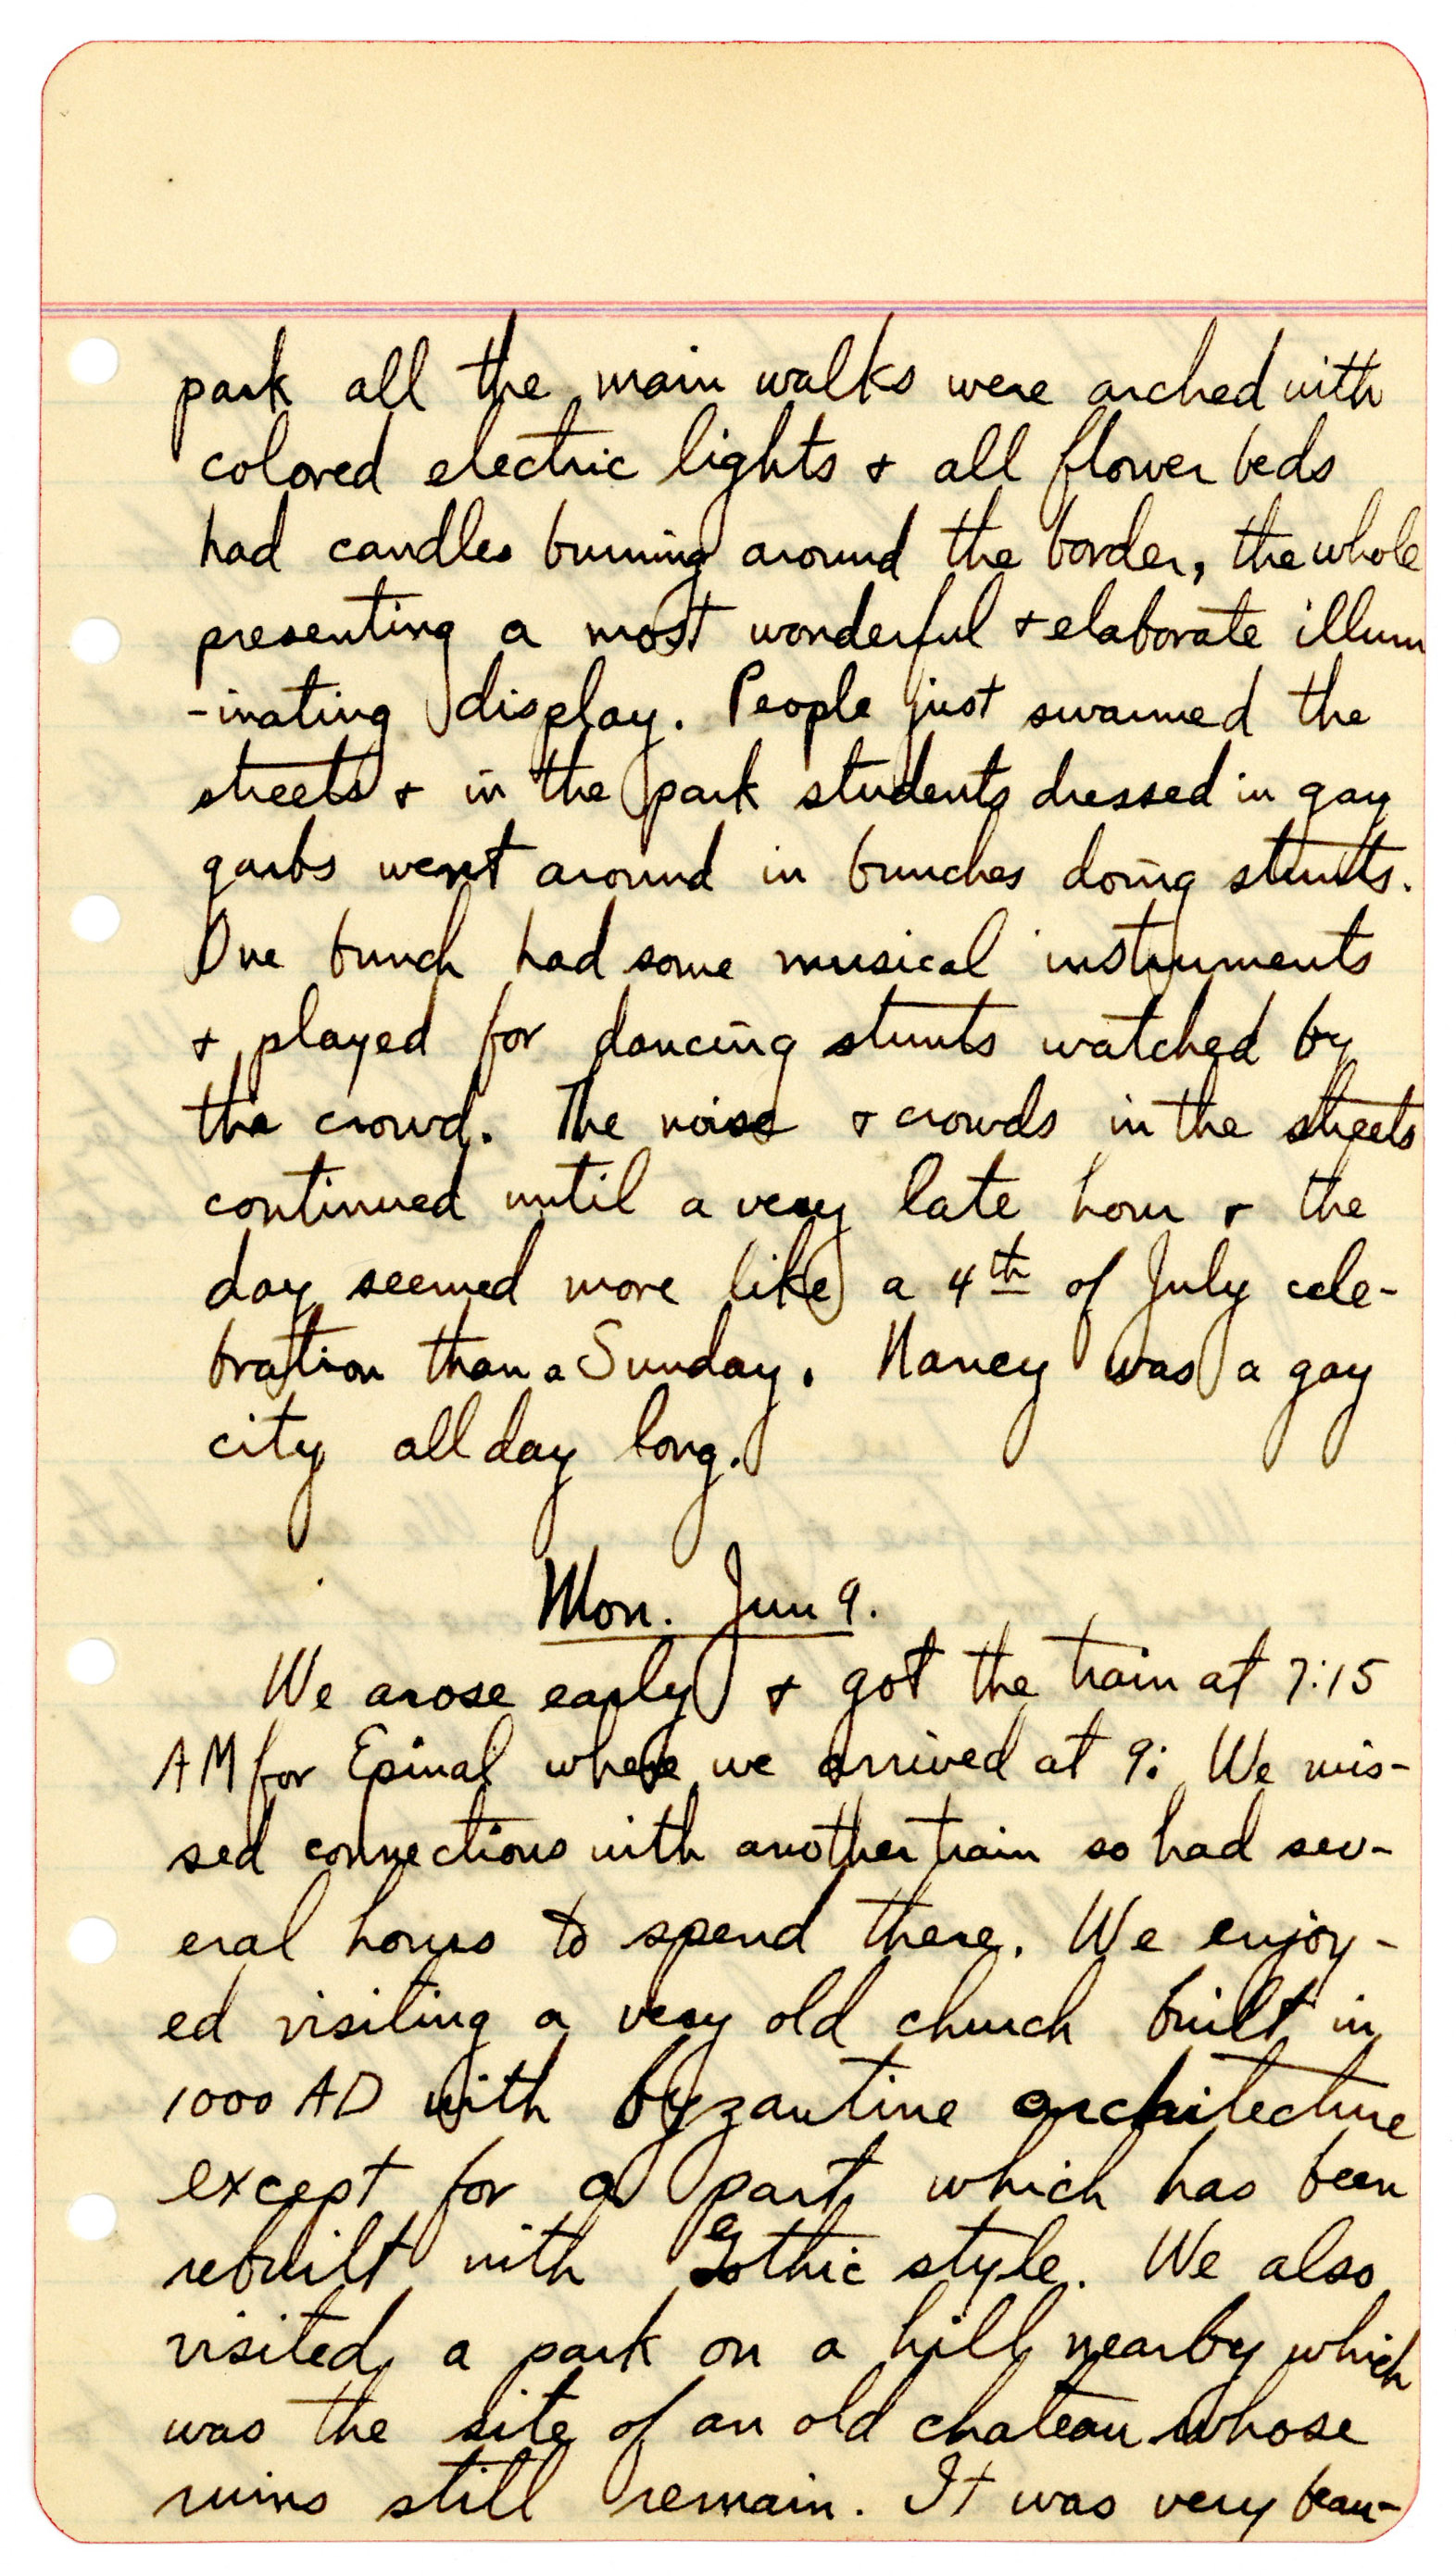 park all the main walks were arched with
colored electric lights + all flower beds
had candles burning around the border, the whole
presenting a most wonderful + elaborate illum
-inating display. People just swarmed the
streets + in the park students dressed in gay
garbs went around in bunches doing stunts.
One bunch had some musical instruments
+ played for dancing stunts watched by
the crowd. The noise + crowds in the streets
continued until a very late hour + the
day seemed more like a 4th of July cele-
bration than a Sunday. Nancy was a gay
city all day long.
Mon. Jun 9.
We arose early + got the train at 7:15
AM for Epinal where we arrived at 9: We mis-
sed connections with another train so had sev-
eral hours to spend there. We enjoy-
ed visiting a very old church built in
1000 AD with byzantine architecture
except for a part which has been
rebuilt with Gothic style. We also
visited a park on a hill nearby which
was the site of an old chateau whose
ruins still remain. It was very beau-